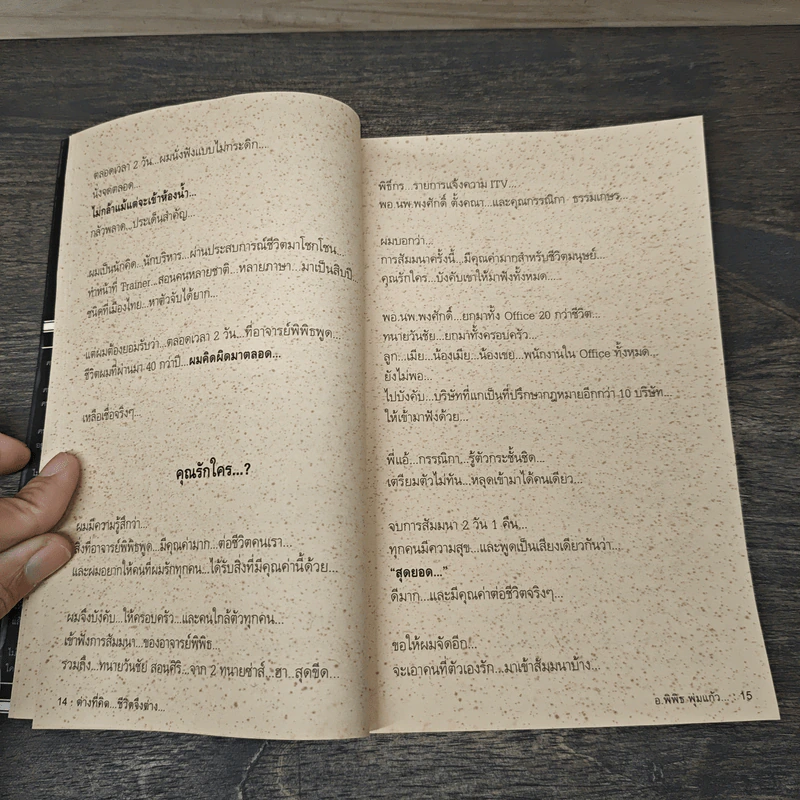 ตลอดเวลา 2 วัน...ผมนั่งฟังแบบไม่กระดิก...
นั่งจดตลอด...
ไม่กล้าแม้แต่จะเข้าห้องน้ำ...
กลัวพลาด...ประเด็นสำคัญ...
ผมเป็นนักคิด...นักบริหาร...ผ่านประสบการณ์ชีวิตมาโชกโชน...
ทำหน้าที่ Trainer...สอนคนหลายชาติ...หลายภาษา...มาเป็นสิบปี...
ชนิดที่เมืองไทย...หาตัวจับได้ยาก...
แต่ผมต้องยอมรับว่า...ตลอดเวลา 2 วัน...ที่อาจารย์พิพิธพูด...
ชีวิตผมที่ผ่านมา 40 กว่าปี...ผมคิดผิดมาตลอด...
เหลือเชื่อจริงๆ...
คุณรักใคร...?
ผมมีความรู้สึกว่า...
สิ่งที่อาจารย์พิพิธพูด...มีคุณค่ามาก...ต่อชีวิตคนเรา...
และผมอยากให้คนที่ผมรักทุกคน...ได้รับสิ่งที่มีคุณค่านี้ด้วย...
ผมจึงบังคับ...ให้ครอบครัว...และคนใกล้ตัวทุกคน...
เข้าฟังการสัมมนา...ของอาจารย์พิพิธ...
รวมถึง...ทนายวันชัย สอนศิริ...จาก 2 ทนายซ่าส์...ฮา...สุดขีด...
14 : ต่างที่คิด...ชีวิตจึงต่าง...
พิธีกร...รายการแจ้งความ ITV...
พอ.นพ.พงศักดิ์ ตั้งคณา...และคุณกรรณิกา ธรรมเกษร...
ผมบอกว่า...
การสัมมนาครั้งนี้...มีคุณค่ามากสำหรับชีวิตมนุษย์...
คุณรักใคร...บังคับเขาให้มาฟังทั้งหมด....
พอ.นพ.พงศักดิ์...ยกมาทั้ง Office 20 กว่าชีวิต...
ทนายวันชัย...ยกมาทั้งครอบครัว...
ลูก...เมีย...น้องเมีย...น้องเขย...พนักงานใน Office ทั้งหมด...
ยังไม่พอ...
ไปบังคับ...บริษัทที่แกเป็นที่ปรึกษากฎหมายอีกกว่า 10 บริษัท...
ให้เข้ามาฟังด้วย...
พี่แอ้...กรรณิกา...รู้ตัวกระชั้นชิด...
เตรียมตัวไม่ทัน...หลุดเข้ามาได้คนเดียว...
จบการสัมมนา 2 วัน 1 คืน...
ทุกคนมีความสุข...และพูดเป็นเสียงเดียวกันว่า...
“สุดยอด...”
ดีมาก...และมีคุณค่าต่อชีวิตจริงๆ...
ขอให้ผมจัดอีก...
จะเอาคนที่ตัวเองรัก...มาเข้าสัมมนาบ้าง...
อ.พิพิธ พุ่มแก้ว... : 15